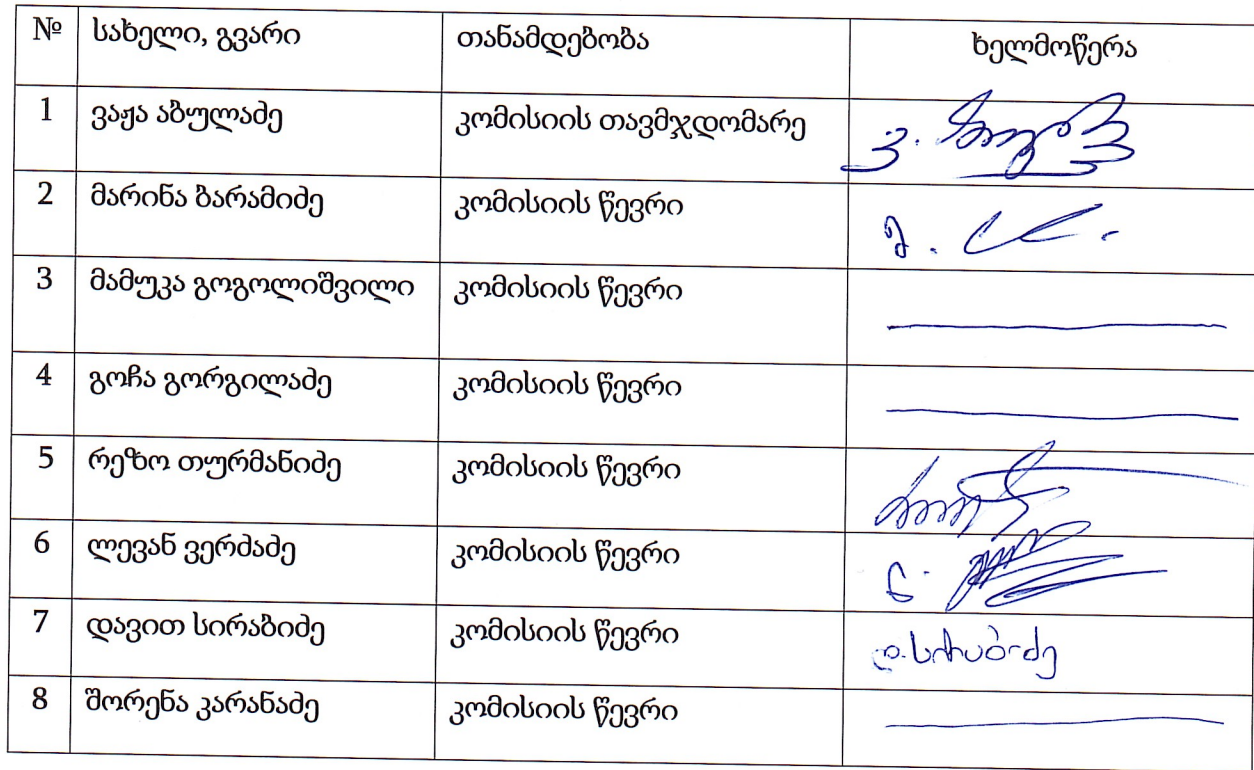 № სახელი, გვარი თანამდებობა ხელმოწერა
1 ვაჟა აბულაძე კომისიის თავმჯდომარე
2 მარინა ბარამიძე კომისიის წევრი
3 მამუკა გოგოლიშვილი კომისიის წევრი
4 გოჩა გორგილაძე კომისიის წევრი
5 რეზო თურმანიძე კომისიის წევრი
6 ლევან ვერძაძე კომისიის წევრი
7 დავით სირაბიძე კომისიის წევრი დ. სირაბიძე
8 შორენა კარანაძე კომისიის წევრი